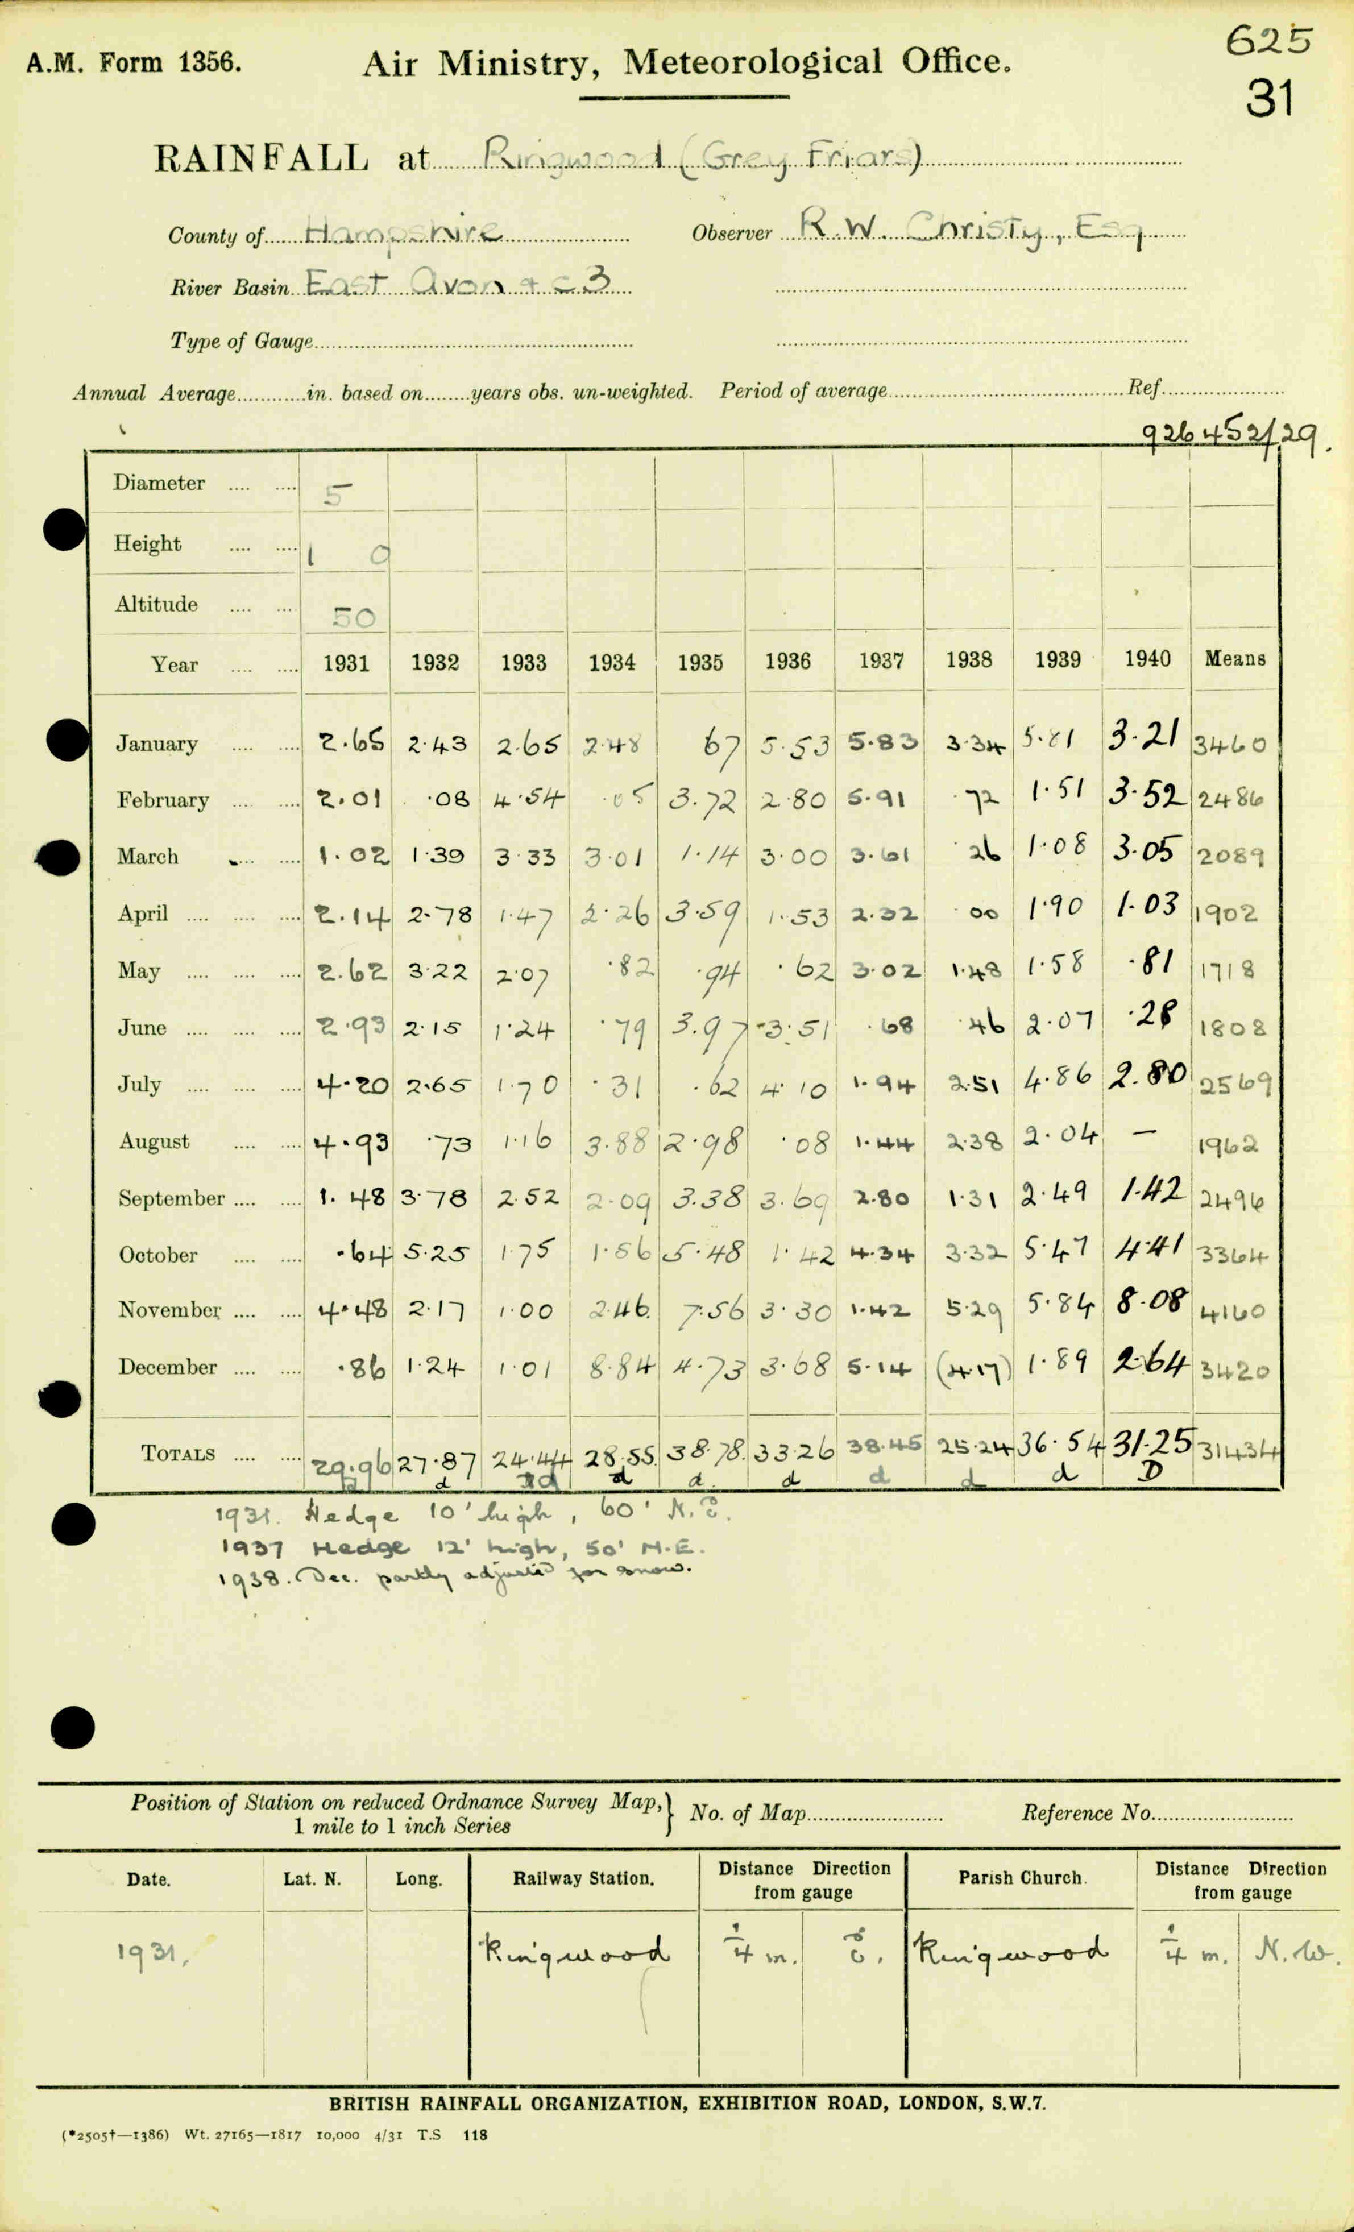 625
31
A.M. Form 1356.
Air Ministry, Meteorological Office.
RAINFALL at Ringwood (Grey Friars)
County of Hampshire Observer R.W. Christy, Esq
River Basin East Avon &c 3
Type of Gauge
Annual Average in. based on years obs. un-weighted. Period of average Ref.
926452/29.
Diameter 5
Height 1 0
Altitude 50
Year 1931 1932 1933 1934 1935 1936 1937 1938 1939 1940 Means
January 2.65 2.43 2.65 2.48 67 5.53 5.83 3.34 5.81 3.21 3460
February 2.01 .08 4.54 .05 3.72 2.80 5.91 .72 1.51 3.52 2486
March 1.02 1.39 3.33 3.01 1.14 3.00 3.61 26 1.08 3.05 2089
April 2.14 2.78 1.47 2.26 3.59 1.53 2.32 00 1.90 1.03 1902
May 2.62 3.22 2.07 .82 .94 .62 3.02 1.48 1.58 .81 1718
June 2.93 2.15 1.24 .79 3.97 3.51 .68 .46 2.07 .28 1808
July 4.20 2.65 1.70 .31 .62 4.10 1.94 2.51 4.86 2.80 2569
August 4.93 .73 1.16 3.88 2.98 .08 1.44 2.38 2.04 — 1962
September 1.48 3.78 2.52 2.09 3.38 3.69 2.80 1.31 2.49 1.42 2496
October .64 5.25 1.75 1.56 5.48 1.42 4.34 3.32 5.47 4.41 3364
November 4.48 2.17 1.00 2.46 7.56 3.30 1.42 5.29 5.84 8.08 4160
December .86 1.24 1.01 8.84 4.73 3.68 5.14 (4.17) 1.89 2.64 3420
TOTALS 29.96 27.87 24.44 28.55 38.78 33.26 38.45 25.24 36.54 31.25 31434
d d d d d d d d D
1931. Hedge 10' high, 60' N.E.
1937 Hedge 12' high, 50' N.E.
1938. Dec. partly adjusted for snow.
Position of Station on reduced Ordnance Survey Map, 1 mile to 1 inch Series } No. of Map Reference No.
Date. Lat. N. Long. Railway Station. Distance Direction from gauge Parish Church. Distance Direction from gauge
1931. Ringwood 1/4 m. E. Ringwood 1/4 m. N.W.
BRITISH RAINFALL ORGANIZATION, EXHIBITION ROAD, LONDON, S.W.7.
(*2505†—1386) Wt. 27165—1817 10,000 4/31 T.S 118